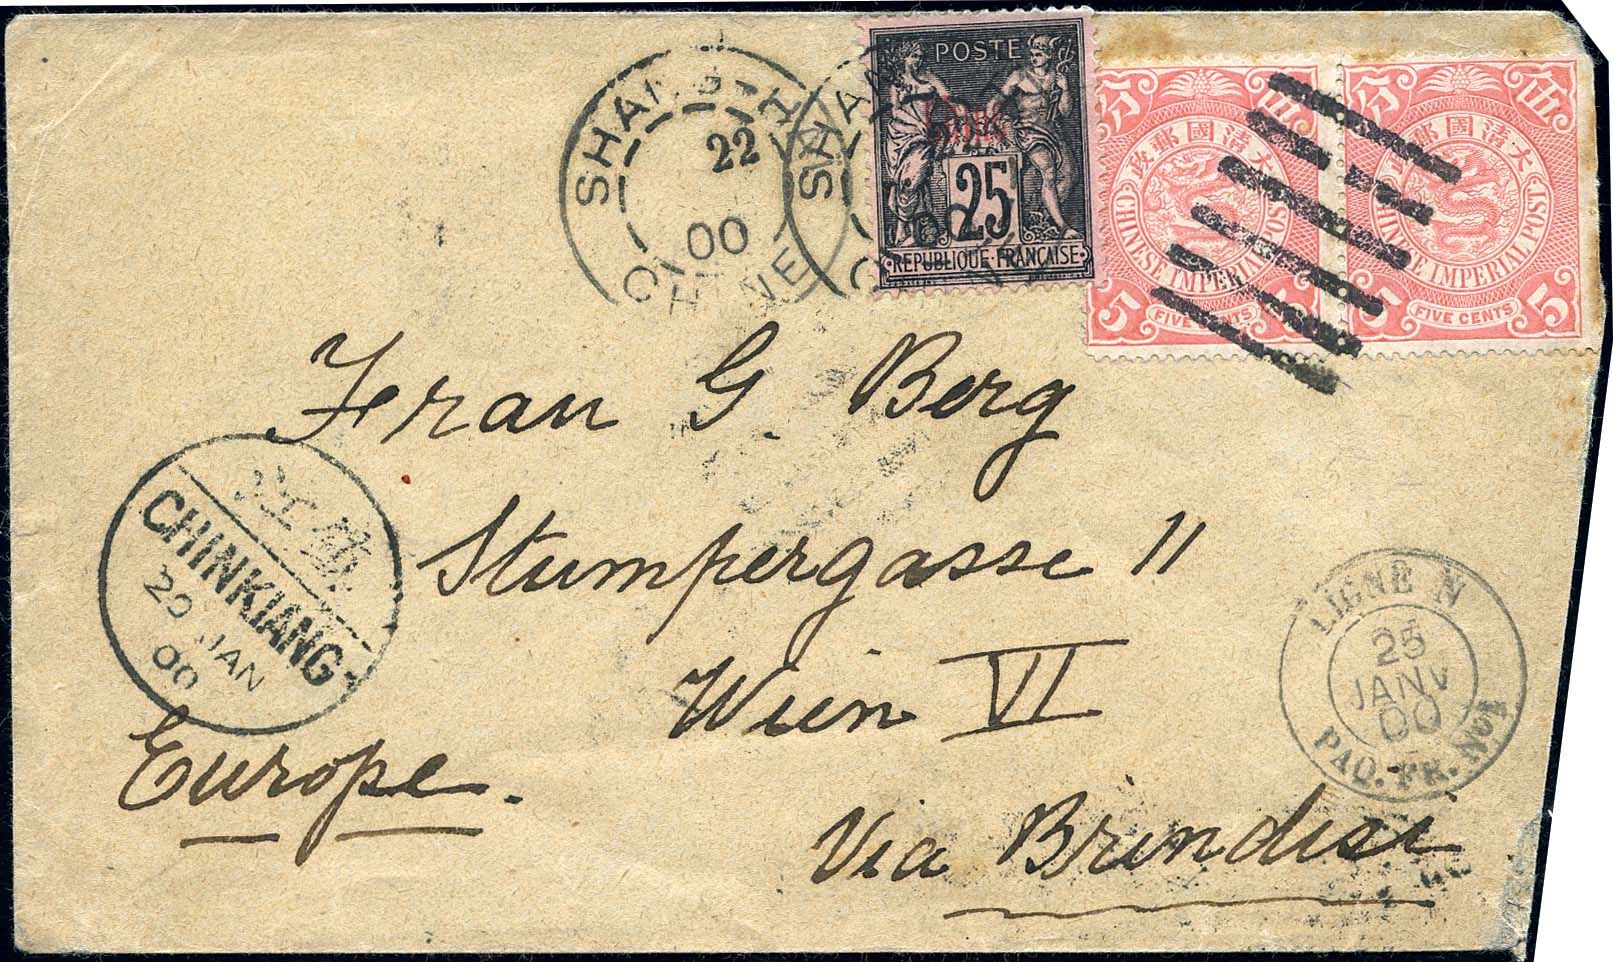 SHANG-H
22
00
CHINE
POSTE
Chine
25
REPUBLIQUE FRANÇAISE
分 伍
大清國郵政
CHINESE IMPERIAL POST
5 FIVE CENTS
分 伍
大清國郵政
CHINESE IMPERIAL POST
5 FIVE CENTS 5
Frau G. Berg
Stumpergasse 11
Wien VI
Europe.
Via Brindisi
江鎮
CHINKIANG
20 JAN
00
LIGNE N
25
JANV
00
PAQ. FR. No 1